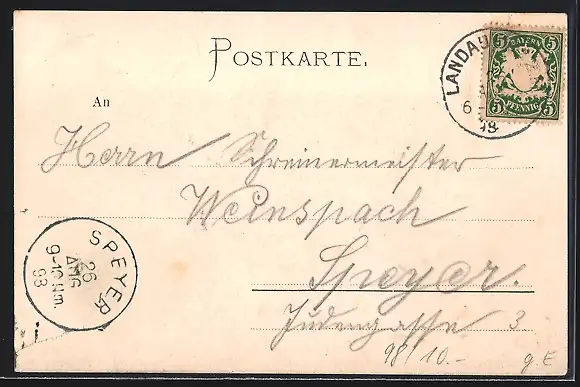 POSTKARTE.
LANDAU
6
98
5 BAYERN 5
5 PFENNIG 5
An
Herrn Schreinermeister
Weinspach
SPEYER
26
AUG
9-10 Vm.
98
Speyer.
Judengasse 3
98/10.-
g E